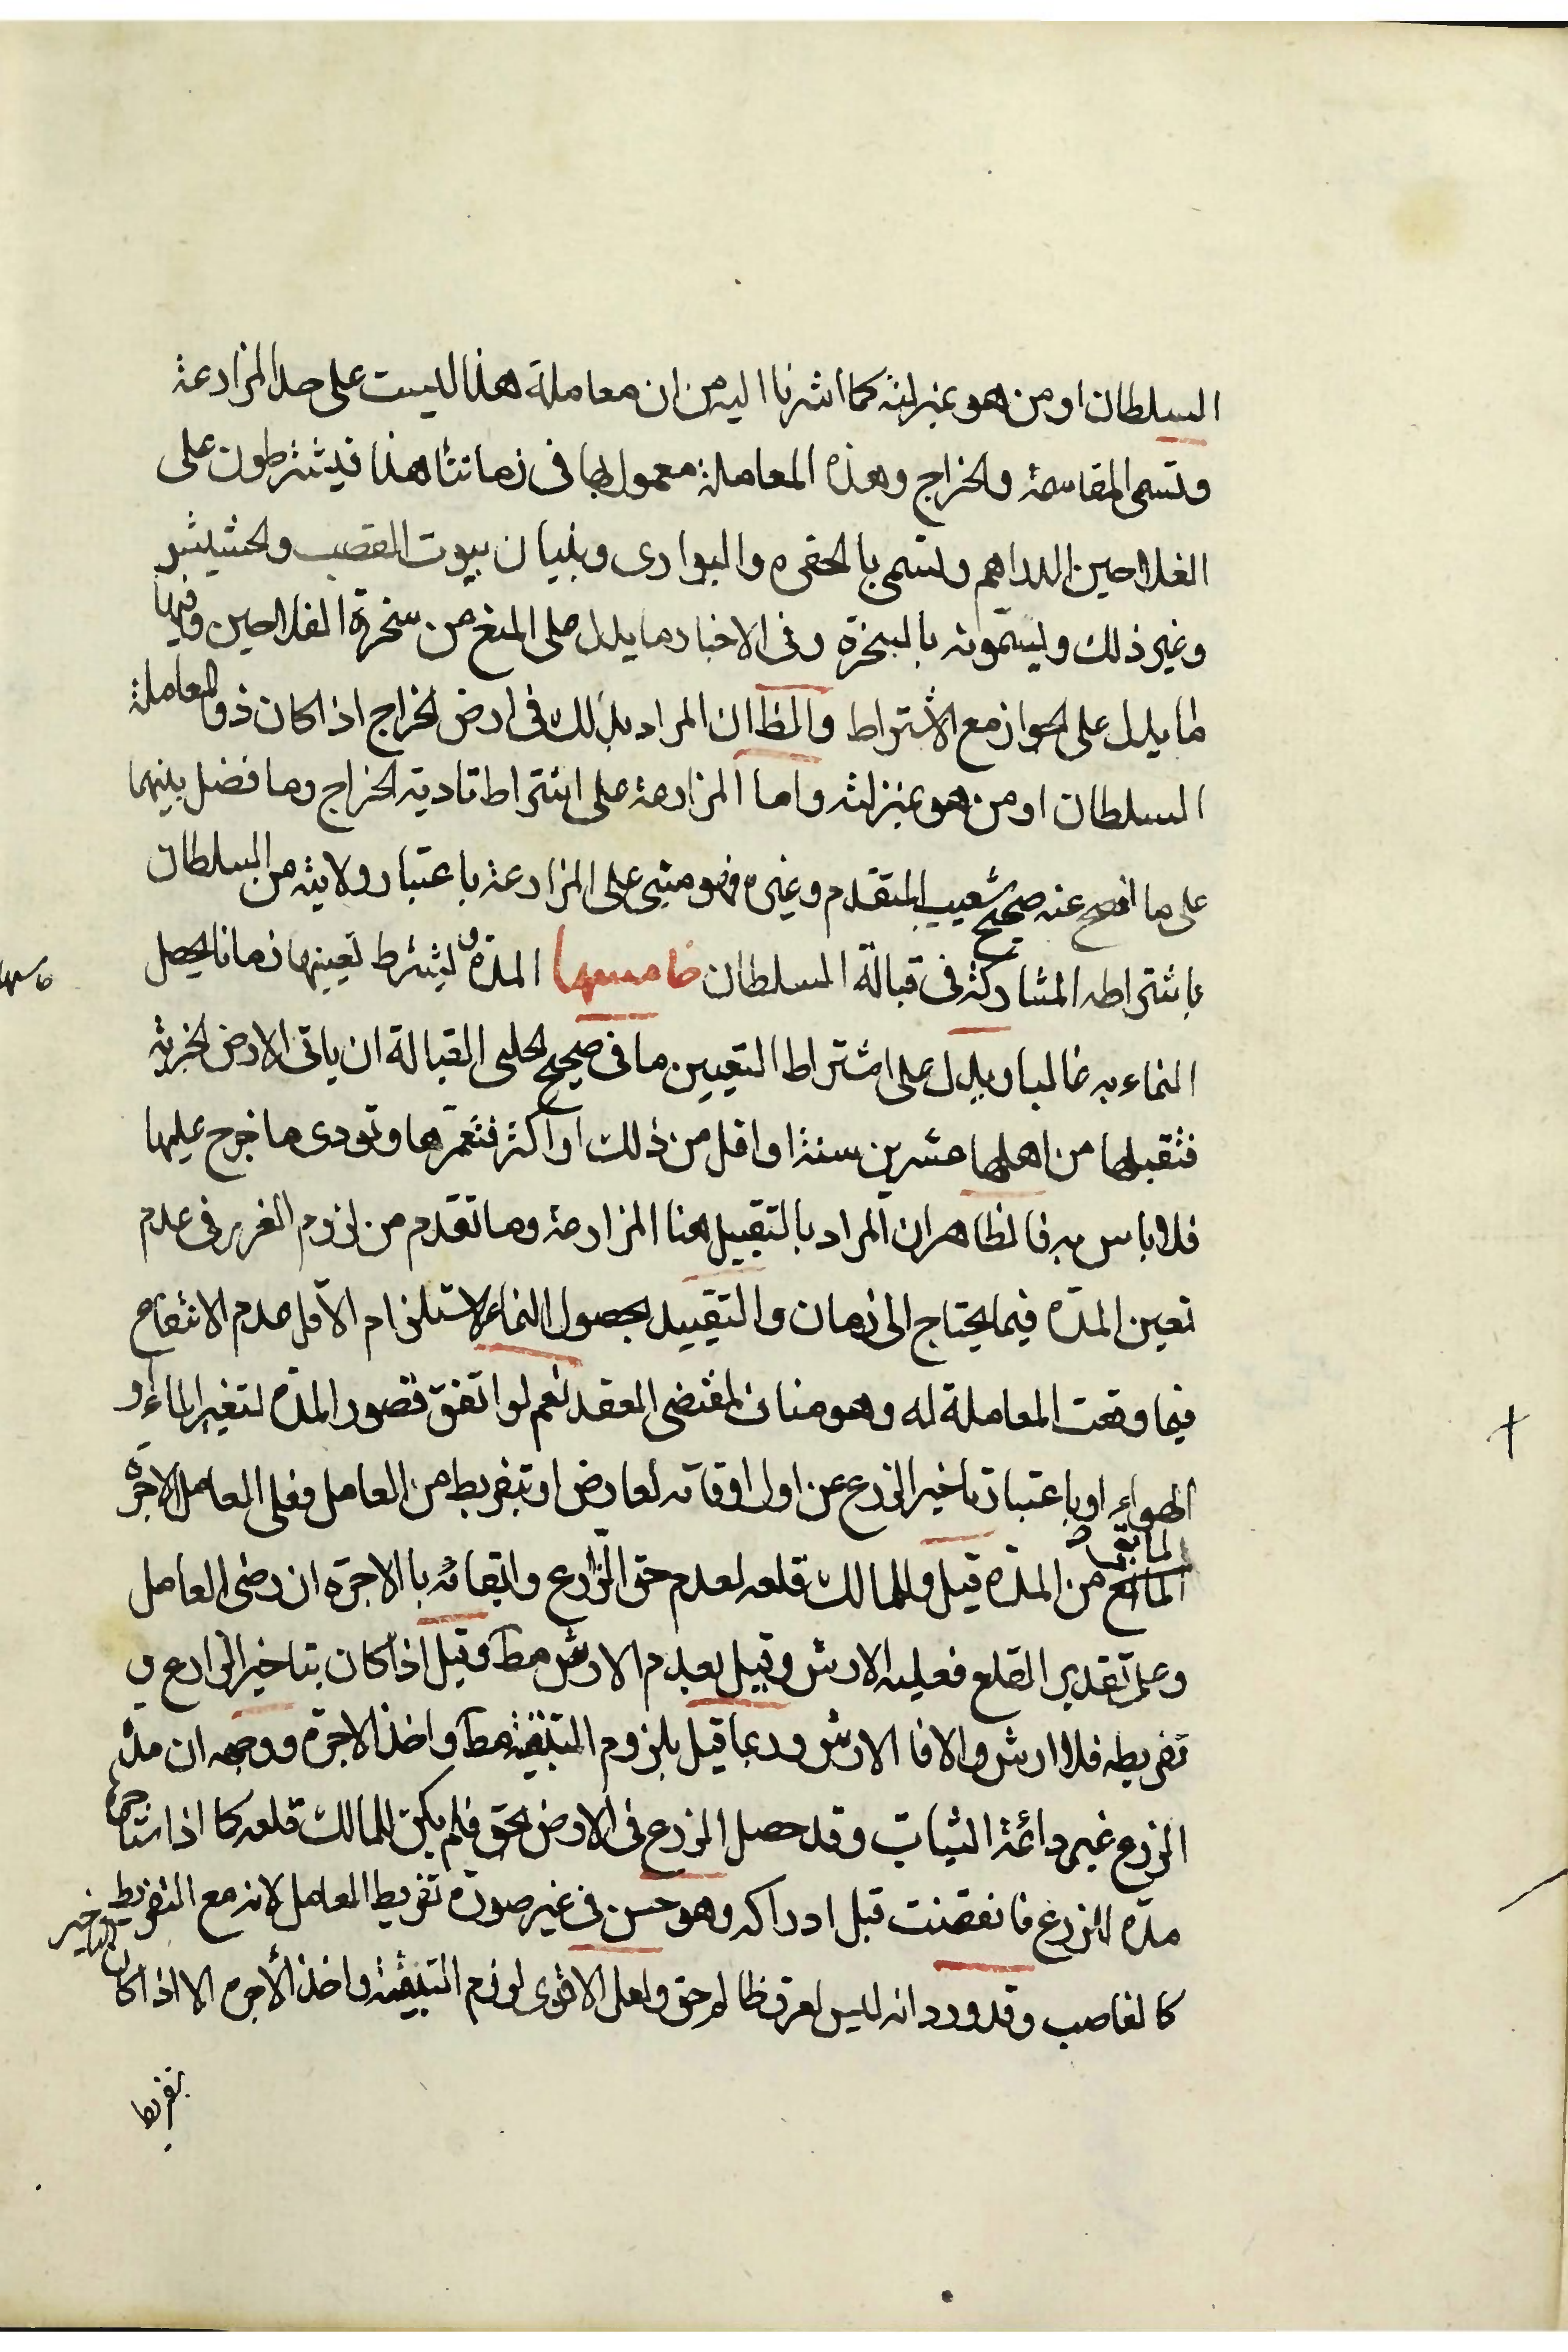 السلطان او من هو بمنزلته كما اشرنا اليه من ان معاملة هذا ليست على حد المزارعة
وتسمى المقاسمة والخراج وهذه المعاملة معمول بها في زماننا هذا فيشترطون على
الفلاحين الدراهم وتسمى بالحفره والبوارى وبنيان بيوت القصب والحشيش
وغير ذلك ويسمّونه بالسخرة وفى الاخبار ما يدل على المنع من سخرة الفلاحين وفيها
ما يدل على الجواز مع الاشتراط والظ ان المراد بذلك فى ارض الخراج اذا كان ذو المعاملة
السلطان او من هو بمنزلته واما المزارعة على اشتراط تادية الخراج وما فضل بينهما
على ما افصح عنه صحيح شعيب المتقدم وغيره فهو مبنى على المزارعة باعتبار ولايته من السلطان
باشتراطه المشاركة فى قبالة السلطان خامسها المدة ويشترط تعيينها زمانا يحصل
النماء به غالبا ويدل على اشتراط التعيين ما فى صحيح الحلبى القبالة ان ياتى الارض الخربة
فتقبلها من اهلها عشرين سنة او اقل من ذلك او اكثر فتعمّرها وتودى ما خرج عليها
فلا باس به فالظاهر ان المراد بالتقبيل هنا المزارعة وما تقدم من لزوم الغرر فى عدم
تعين المدّة فيما يحتاج الى زمان والتقييد بحصول النماء لاستلزام الاقل عدم الانتفاع
فيما وقعت المعاملة له وهو مناف لمقتضى العقد نعم لو اتفق قصور المدة لتغير الماء او
الهواء او باعتبار تاخير الزرع عن اول اوقاته لعارض او تبفريط من العامل فعلى العامل الاجرة
لما بقى من المدّة قيل وللمالك قلعه لعدم حق الزارع وابقائه بالاجرة ان رضى العامل
وعلى تقدير القلع فعليه الارش وقيل بعدم الارش مط وقيل اذا كان بتاخير الزارع و
تفريطه فلا ارش والا فالارش وربما قيل بلزوم التبقية مط واخذ الاجرة ووجهه ان مدة
الزرع غير دائمة الثبات وقد حصل الزرع فى الارض بحق فلم يكن للمالك قلعه كما اذا استاجر
مدّة للزرع فانقضت قبل ادراكه وهو حسن فى غير صورة تفريط العامل لانه مع التفريط
كالغاصب وقد ورد انه ليس لعرق ظالم حق ولعل الاقوى لزوم التبقية واخذ الأجرة الا اذا كان التاخير